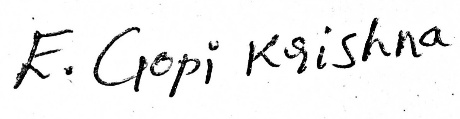 E. Gopi Krishna